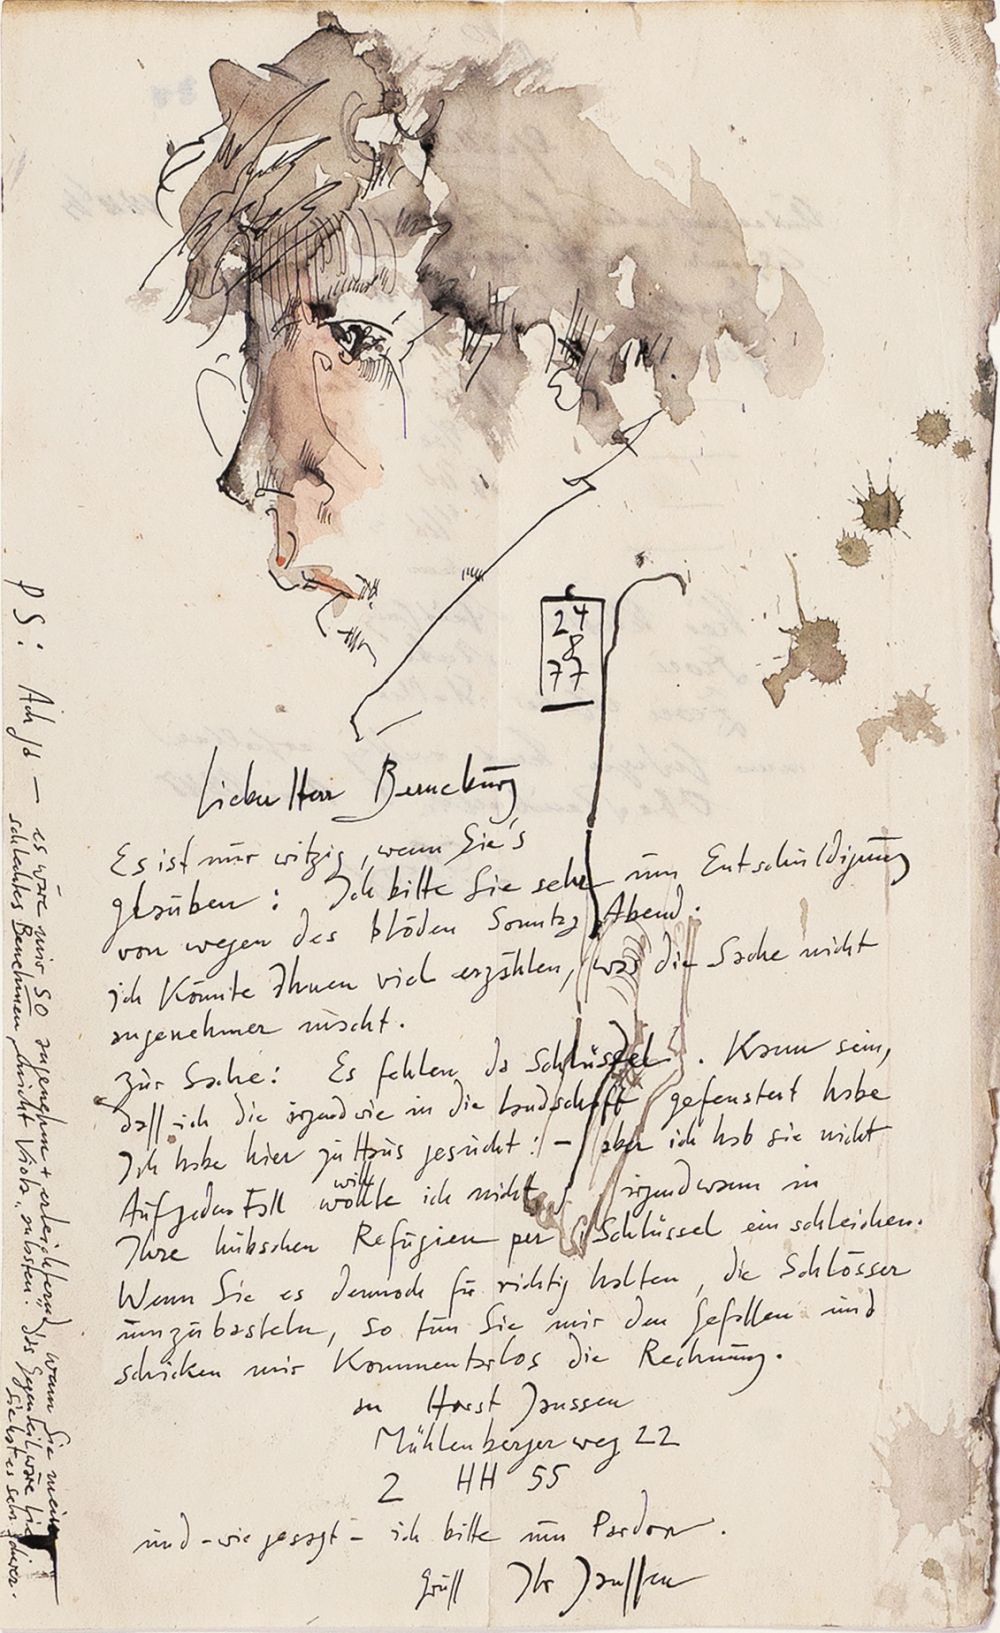 24
8
77
Lieber Herr Berneburg
Es ist nur witzig, wenn Sie's
glauben: Ich bitte Sie sehr um Entschuldigung
von wegen des blöden Sonntag Abend.
ich könnte Ihnen viel erzählen, was die Sache nicht
angenehmer macht.
zur Sache: Es fehlen da Schlüssel. Kann sein,
daß ich die irgendwie in die Landschaft gefenstert habe
Ich habe hier zu Haus gesucht: – aber ich hab sie nicht
will
Auf jeden Fall wollte ich nicht irgendwann in
Ihre hübschen Refugien per Schlüssel ein schleichen.
Wenn Sie es dennoch für richtig halten, die Schlösser
umzubasteln, so tun Sie mir den Gefallen und
schicken mir Kommentarlos die Rechnung.
an Horst Janssen
Mühlenberger weg 22
2 HH 55
und – wie gesagt – ich bitte um Pardon.
Gruß Ihr Janssen
PS: Ach ja – es wäre mir SO angenehm + erleichternd, wenn Sie mein
schlechtes Benehmen nicht Viola das Gegenteil wäre
es sehr schwer.